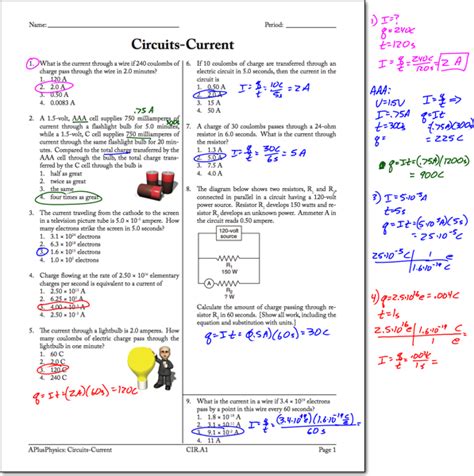 Name: Period:
Circuits-Current
1. What is the current through a wire if 240 coulombs of
charge pass through the wire in 2.0 minutes?
1. 120 A
2. 2.0 A
3. 0.50 A
4. 0.0083 A
.75 A
2. A 1.5-volt, AAA cell supplies 750 milliamperes of
current through a flashlight bulb for 5.0 minutes,
while a 1.5-volt, C cell supplies 750 milliamperes of
current through the same flashlight bulb for 20 min-
utes. Compared to the total charge transferred by the
AAA cell through the bulb, the total charge trans-
ferred by the C cell through the bulb is
1. half as great
2. twice as great
3. the same
4. four times as great
3. The current traveling from the cathode to the screen
in a television picture tube is 5.0 × 10⁻⁵ ampere. How
many electrons strike the screen in 5.0 seconds?
1. 3.1 × 10²⁴ electrons
2. 6.3 × 10¹⁸ electrons
3. 1.6 × 10¹⁵ electrons
4. 1.0 × 10⁵ electrons
4. Charge flowing at the rate of 2.50 × 10¹⁶ elementary
charges per second is equivalent to a current of
1. 2.50 × 10¹³ A
2. 6.25 × 10⁵ A
3. 4.00 × 10⁻³ A
4. 2.50 × 10⁻³ A
5. The current through a lightbulb is 2.0 amperes. How
many coulombs of electric charge pass through the
lightbulb in one minute?
1. 60 C
2. 2.0 C
3. 120 C
4. 240 C
q = It = (2A)(60s) = 120C
6. If 10 coulombs of charge are transferred through an
electric circuit in 5.0 seconds, then the current in the
circuit is
1. 0.50 A
2. 2.0 A
3. 15 A
4. 50 A
I = q/t = 10C/5s = 2A
7. A charge of 30 coulombs passes through a 24-ohm
resistor in 6.0 seconds. What is the current through
the resistor?
1. 1.3 A
2. 5.0 A
3. 7.5 A
4. 4.0 A
I = q/t = 30C/6s = 5A
8. The diagram below shows two resistors, R₁ and R₂,
connected in parallel in a circuit having a 120-volt
power source. Resistor R₁ develops 150 watts and re-
sistor R₂ develops an unknown power. Ammeter A in
the circuit reads 0.50 ampere.
120-volt
source
R₁
150 W
A
R₂
Calculate the amount of charge passing through resis-
tor R₂ in 60. seconds. [Show all work, including the
equation and substitution with units.]
q = It = (.5A)(60s) = 30C
9. What is the current in a wire if 3.4 × 10¹⁹ electrons
pass by a point in this wire every 60 seconds?
1. 1.8 × 10⁻¹⁸ A
2. 3.1 × 10⁻¹¹ A
3. 9.1 × 10⁻² A
4. 11 A
APlusPhysics: Circuits-Current CIR.A1 Page 1
1) I = ?
q = 240C
t = 120s
I = q/t = 240C/120s = 2A
AAA:
V = 1.5V
I = .75A
t = 300s
I = q/t ⇒
q = It
(.75A)(300s)
= 225C
q = It = (.75A)(1200s)
= 900C
3) I = 5·10⁻⁵A
t = 5s
q = It = (5·10⁻⁵A)(5s)
= 25·10⁻⁵C
4) q = 2.5·10¹⁶e = .004C
t = 1s